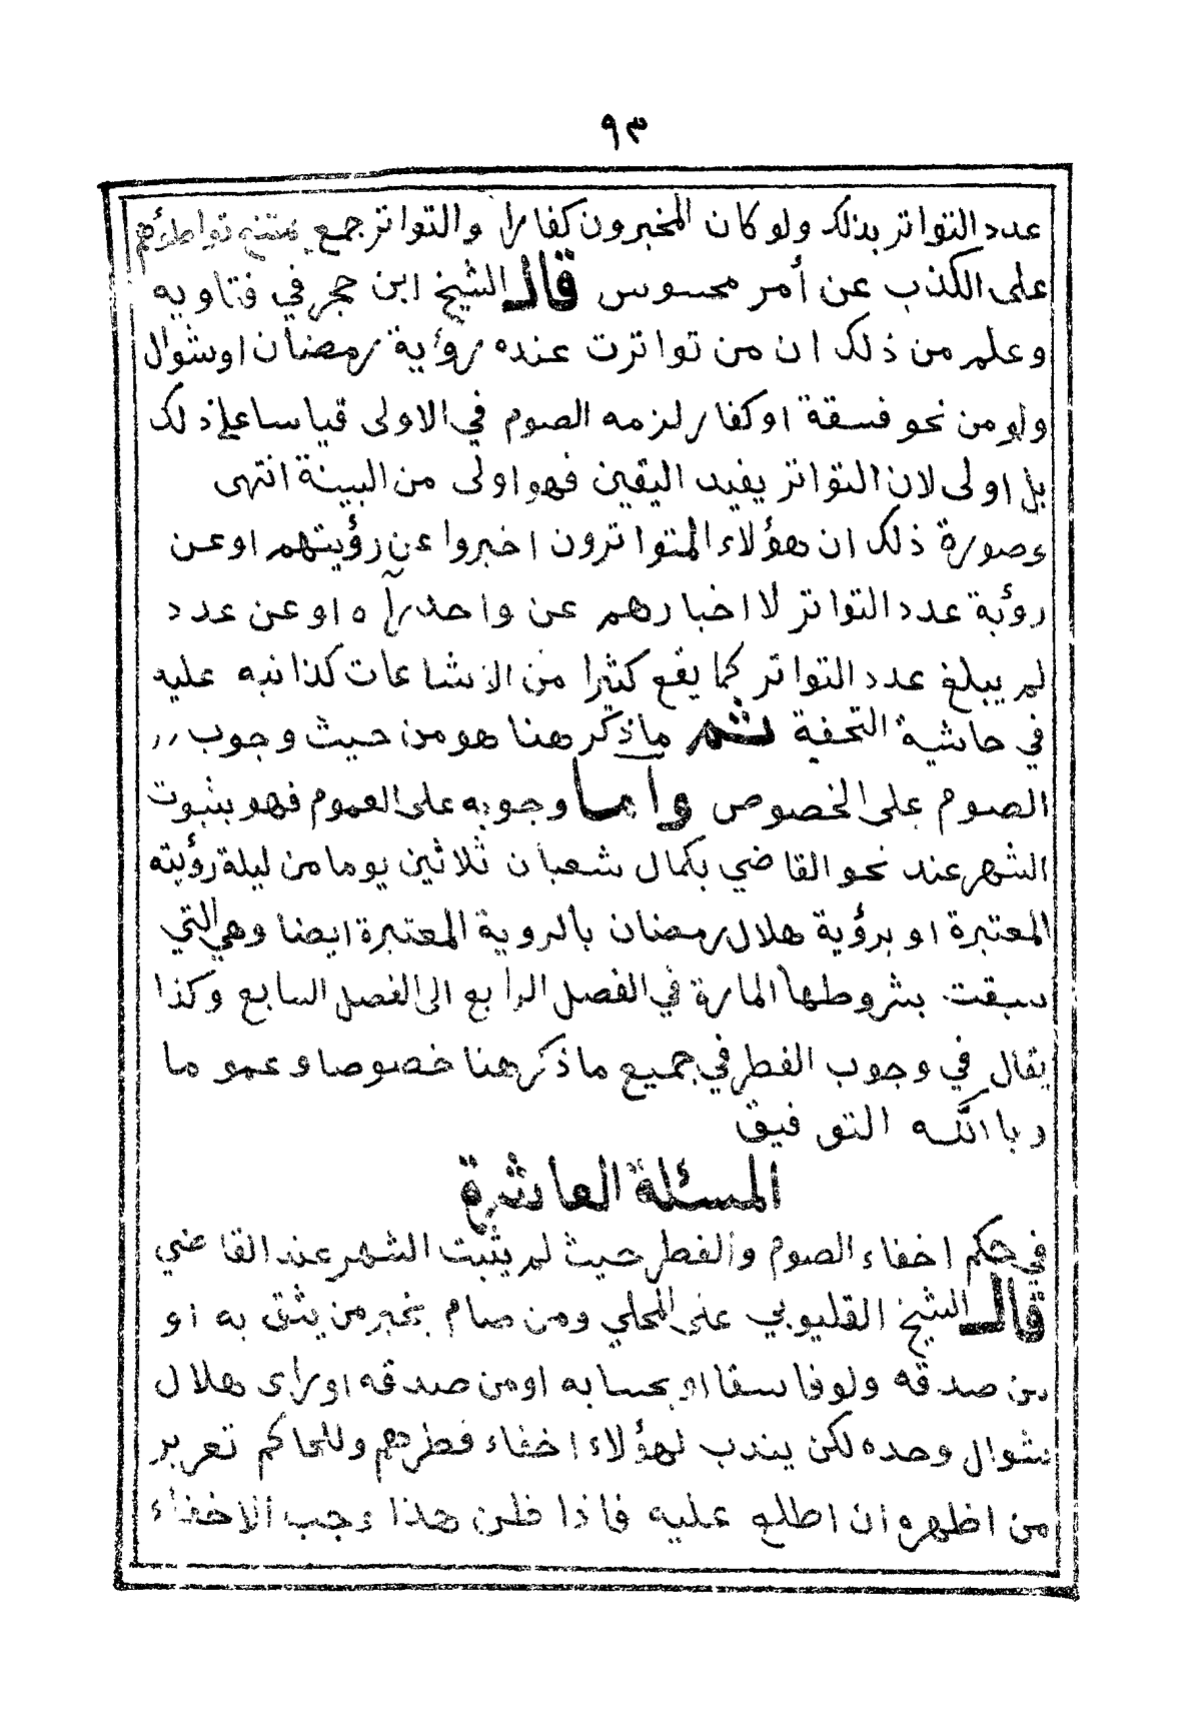 ٩٣
عدد التواتر بذلك ولو كان المخبرون كفارا والتواتر جمع يمتنع تواطؤهم
على الكذب عن أمر محسوس قال الشيخ ابن حجر في فتاويه
وعلم من ذلك ان من تواترت عنده رؤية رمضان او شوال
ولو من نحو فسقة او كفار لزمه الصوم في الاولى قياسا على ذلك
بل اولى لان التواتر يفيد اليقين فهو اولى من البينة انتهى
وصورة ذلك ان هؤلاء المتواترون اخبروا عن رؤيتهم او عن
رؤية عدد التواتر لا اخبارهم عن واحد رآه او عن عدد
لم يبلغ عدد التواتر كما يقع كثيرا من الاشاعات كذا نبه عليه
في حاشية التحفة ثم ما ذكر هنا هو من حيث وجوب
الصوم على الخصوص وأما وجوبه على العموم فهو بثبوت
الشهر عند نحو القاضي بكمال شعبان ثلاثين يوما من ليلة رؤيته
المعتبرة او برؤية هلال رمضان بالروية المعتبرة ايضا وهي التي
سبقت بشروطها المارة في الفصل الرابع الى الفصل السابع وكذا
يقال في وجوب الفطر في جميع ما ذكر هنا خصوصا وعموما
وبالله التوفيق
المسئلة العاشرة
في حكم اخفاء الصوم والفطر حيث لم يثبت الشهر عند القاضي
قال الشيخ القليوبي على المحلي ومن صام بخبر من يثق به او
من صدقه ولو فاسقا او بحسابه او من صدقه او راى هلال
شوال وحده لكن يندب لهؤلاء اخفاء فطرهم وللحاكم تعزير
من اظهره ان اطلع عليه فاذا ظن هذا وجب الاخفاء